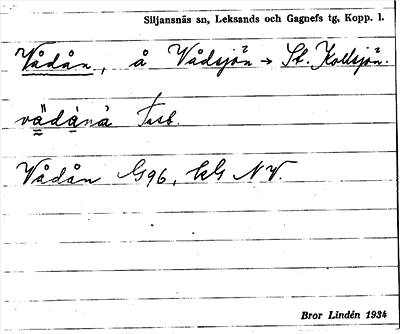 Siljansnäs sn, Leksands och Gagnefs tg, Kopp. l.
Vådån, å Vådsjön → St. Kollsjön.
vä̀dåna
Vådån G96, kG NV.
Bror Lindén 1934